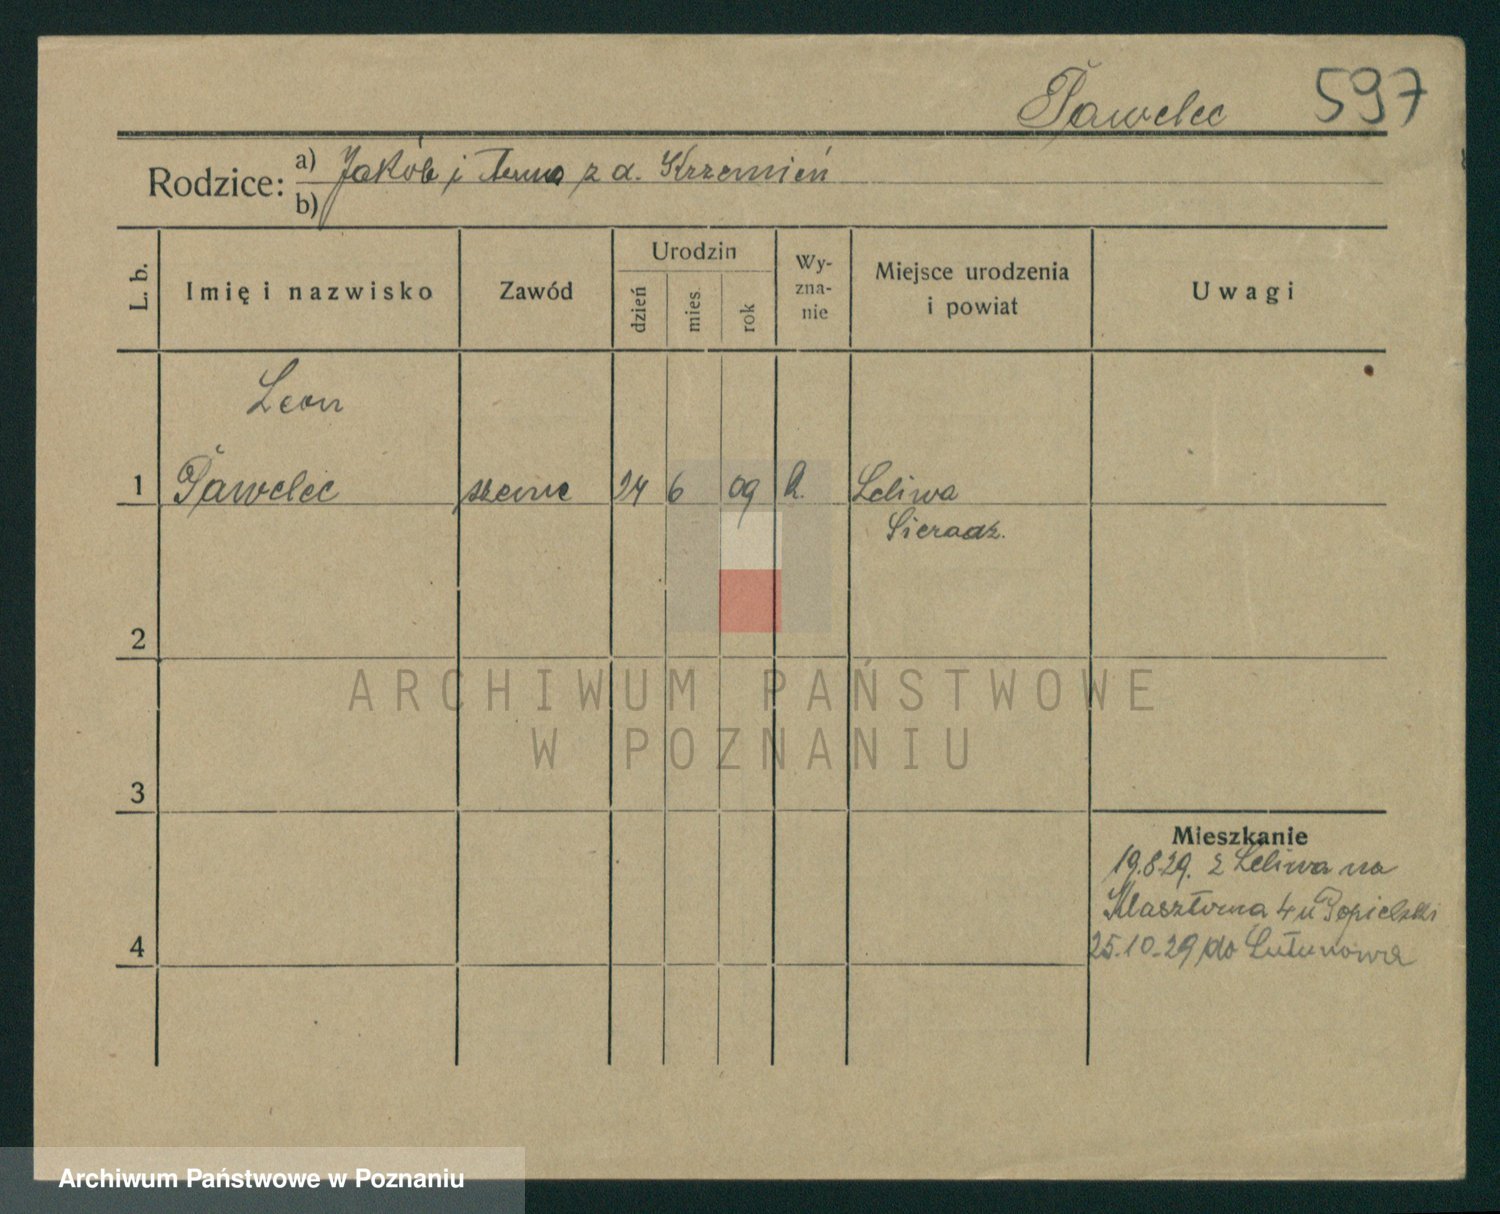 Pawelec 597
Rodzice: a) Jakób i Anna z d. Krzemień
b)
L. b.
Imię i nazwisko
Zawód
Urodzin
dzień
mies.
rok
Wy-
zna-
nie
Miejsce urodzenia
i powiat
Uwagi
Leon
1 Pawelec szewc 24 6 09 k. Leliwa
Sieradz.
2
3
4
Mieszkanie
19.8.29. z Leliwa na
Klasztorna 4 u Popielski
25.10.29 do Lututowa
ARCHIWUM PAŃSTWOWE
W POZNANIU
Archiwum Państwowe w Poznaniu